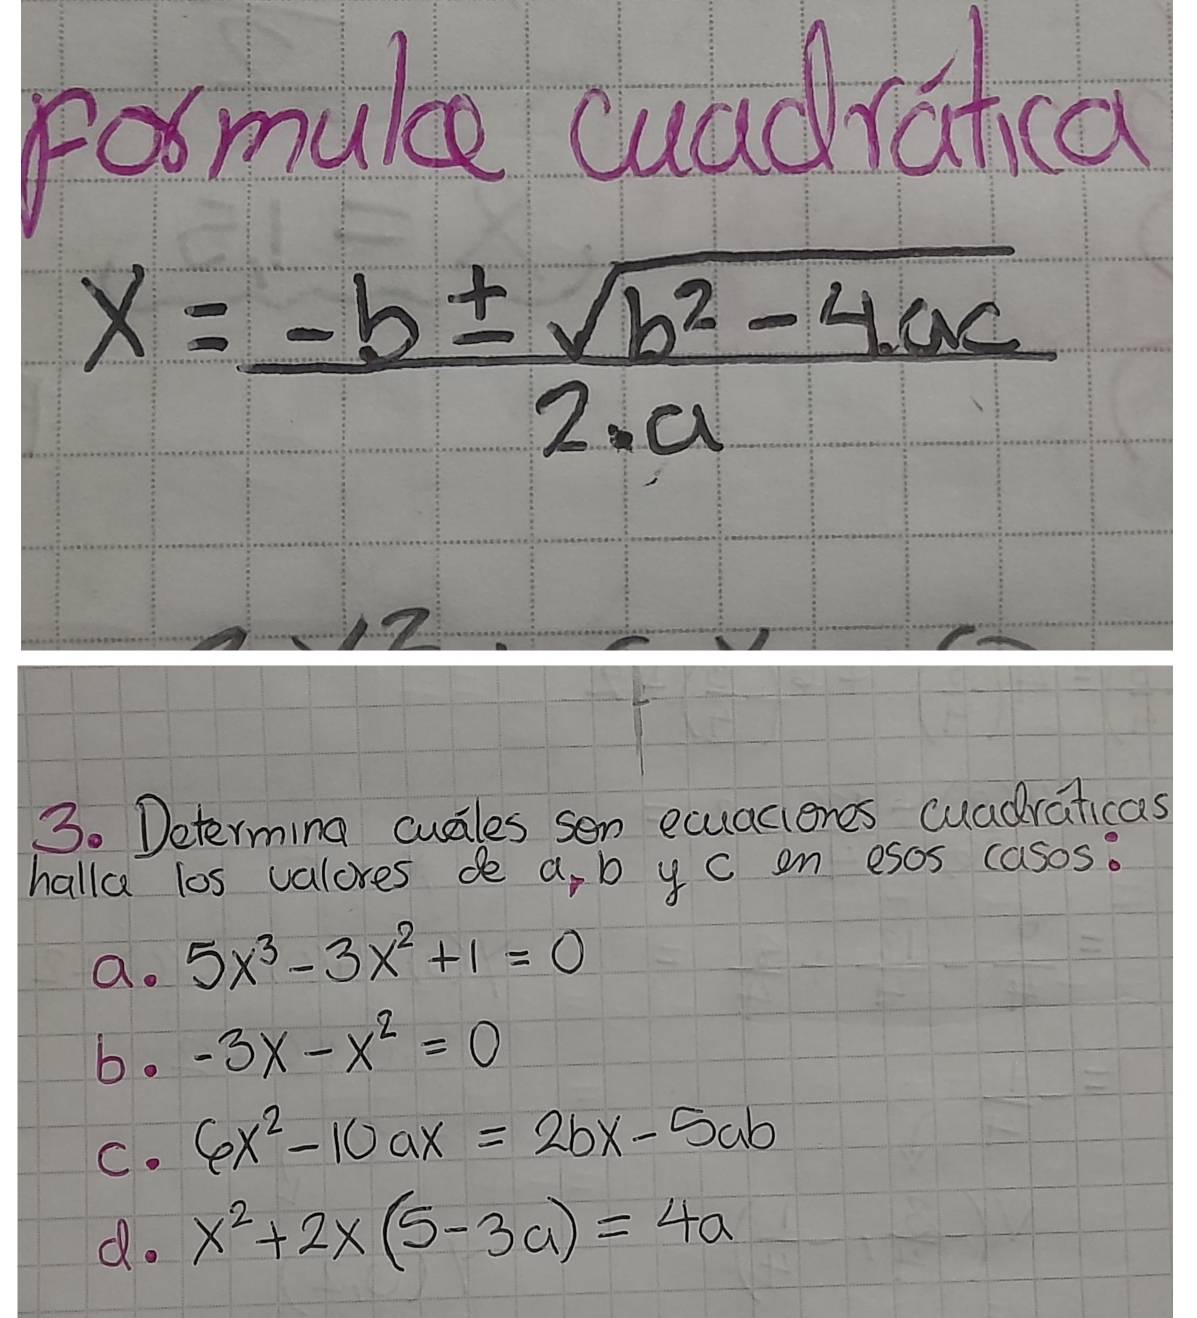 Formula cuadrática
x = -b ± √b² - 4.ac
2.a
3. Determina cuáles son ecuaciones cuadráticas
halla los valores de a, b y c en esos casos:
a. 5x³ - 3x² + 1 = 0
b. -3x - x² = 0
c. 6x² - 10ax = 2bx - 5ab
d. x² + 2x (5 - 3a) = 4a